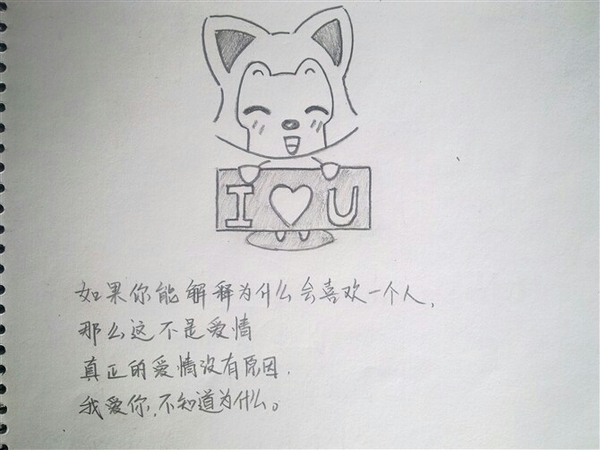 I ♥ U
如果你能解释为什么会喜欢一个人,
那么这不是爱情
真正的爱情没有原因.
我爱你,不知道为什么。